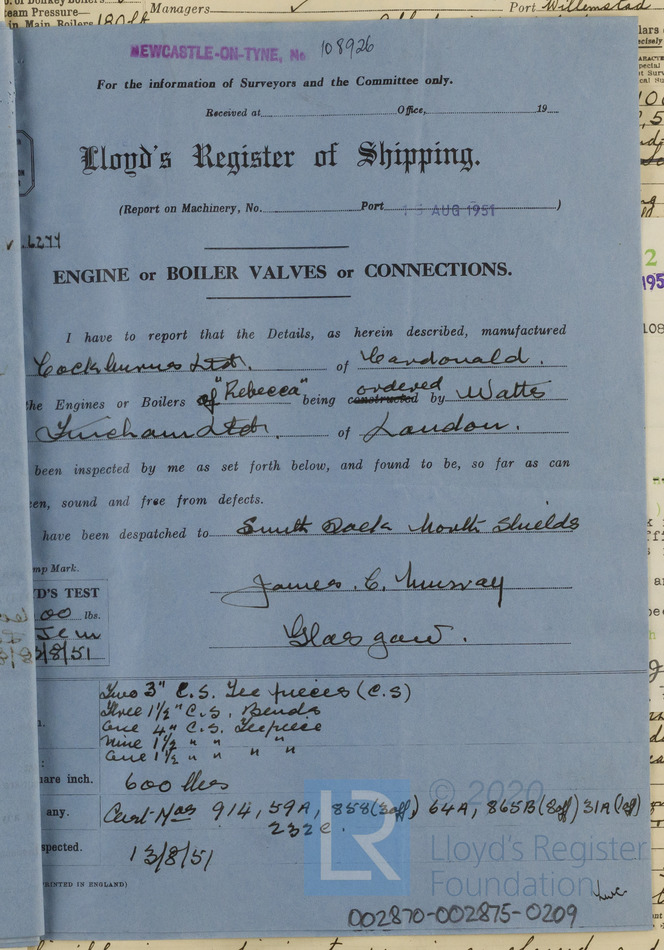 team Pressure— Managers Port Willemstad
in Main Boilers 180 lb
NEWCASTLE-ON-TYNE, No 108926
For the information of Surveyors and the Committee only.
Received at Office, 19
Lloyd's Register of Shipping.
(Report on Machinery, No. Port 15 AUG 1951 )
ENGINE or BOILER VALVES or CONNECTIONS.
I have to report that the Details, as herein described, manufactured
Cockburns Ltd. of Cardonald.
the Engines or Boilers of "Rebecca" being constructed ordered by Watts
Fincham Ltd. of London.
been inspected by me as set forth below, and found to be, so far as can
en, sound and free from defects.
have been despatched to Smith Dock North Shields
mp Mark.
James. C. Murray
D'S TEST
00 lbs.
JCM
Glasgow.
/8/51
Two 3" C.S. Tee pieces (C.S)
Three 1½" C.S. Bends
One 4" C.S. Teepiece
Nine 1½ " " " "
One 1½ " " " "
are inch. 600 lbs
any. Cert Nos 914, 59A, 858(3off) 64A, 865B(8off) 31A( off)
232C.
spected. 13/8/51
© 2020
Lloyd's Register
Foundation
LR
PRINTED IN ENGLAND)
002870-002875-0209